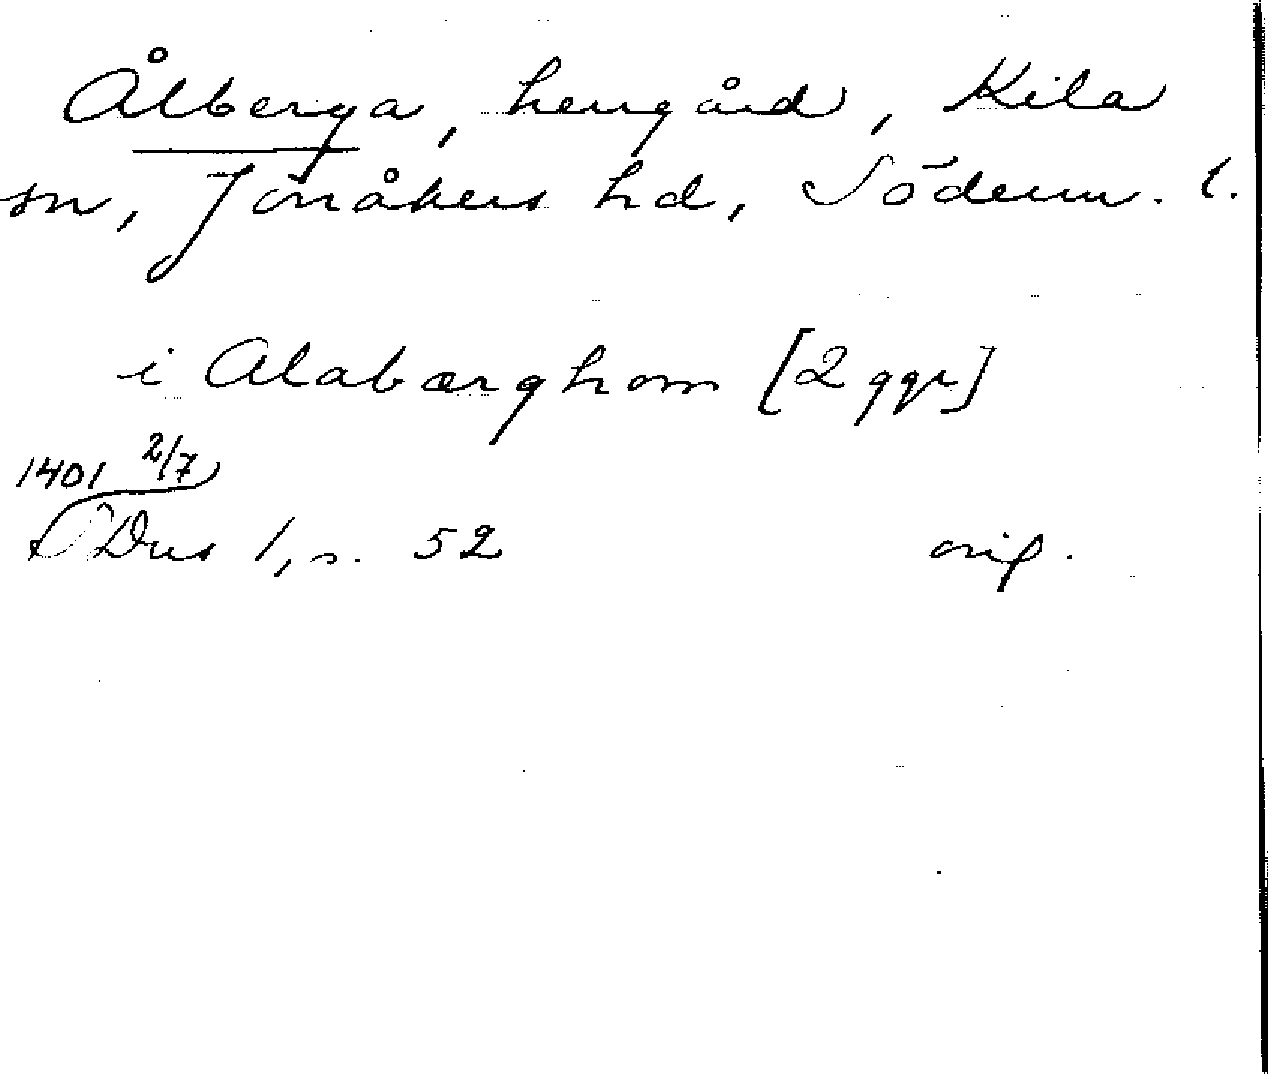 Ålberga, herrgård, Kila
sn, Jönåkers hd, Söderm. l.
i Alabærghom [2 ggr]
1401 2/7
SDns 1, s. 52 orig.